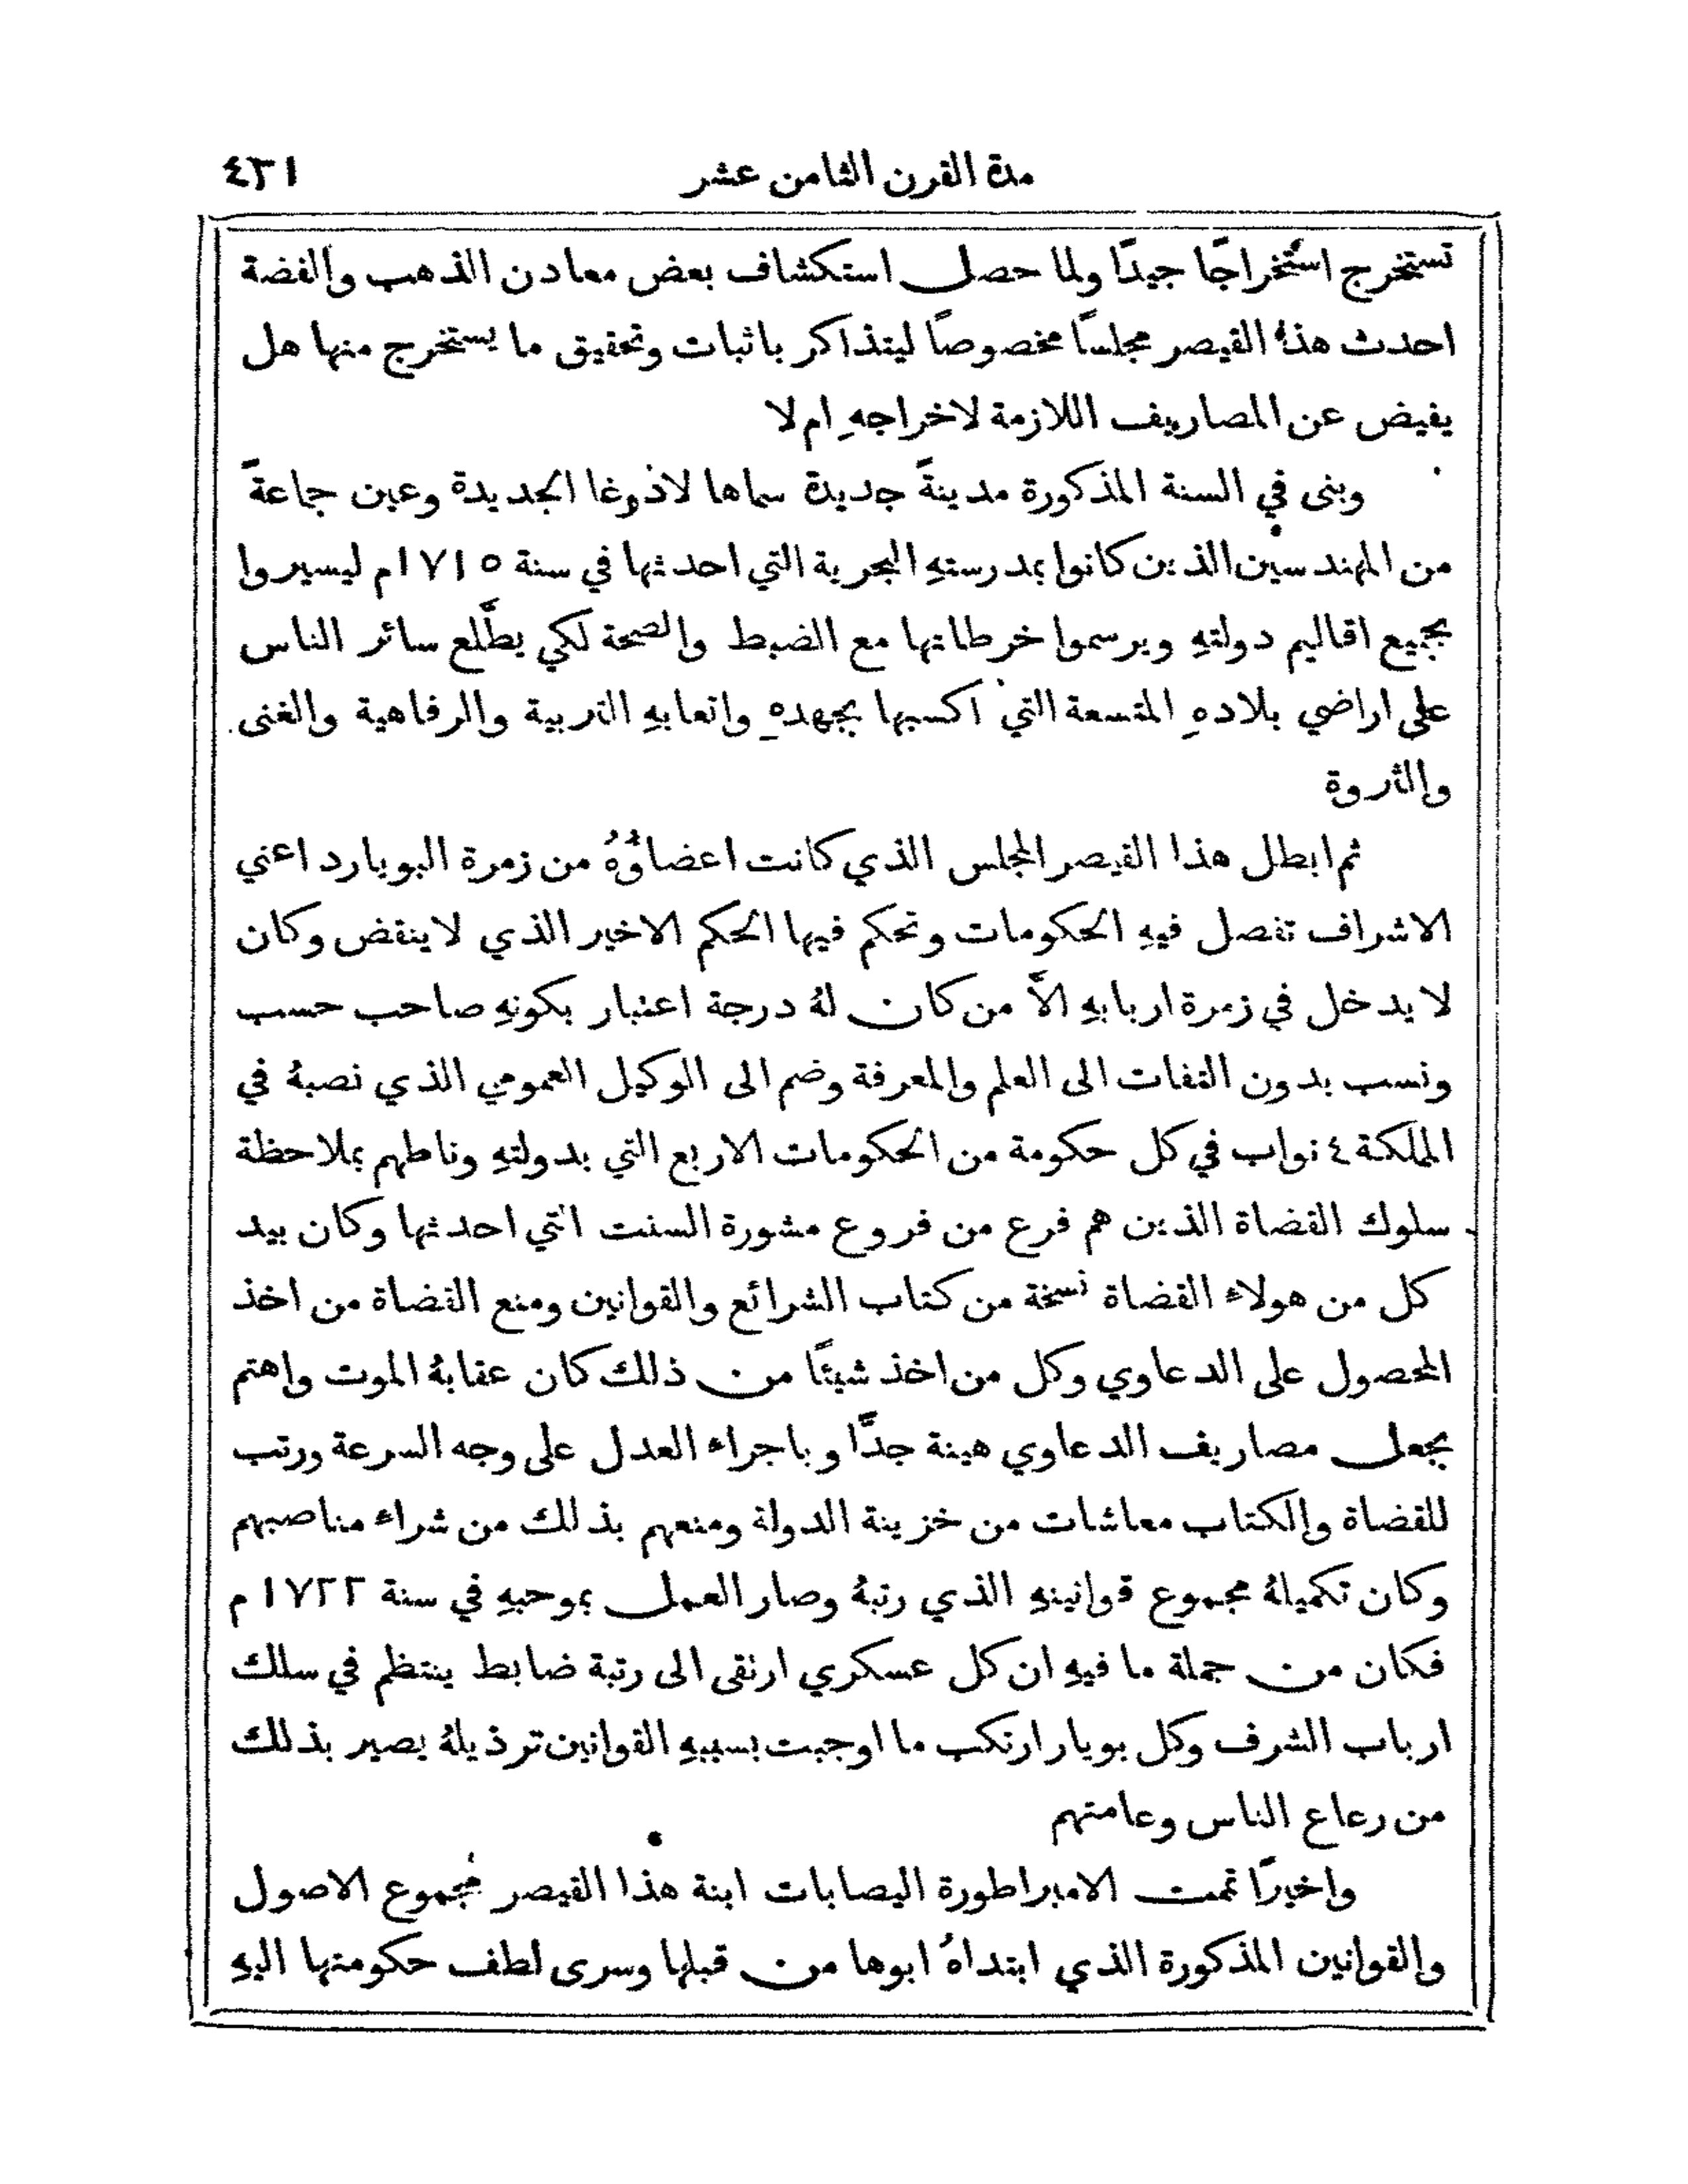 مدة القرن الثامن عشر ٤٣١
تستخرج استخراجًا جيدًا ولما حصل استكشاف بعض معادن الذهب والفضة
احدث هذا القيصر مجلسًا مخصوصًا ليتذاكر باثبات وتحقيق ما يستخرج منها هل
يفيض عن المصاريف اللازمة لاخراجهِ ام لا
وبنى في السنة المذكورة مدينةً جديدة سماها لادوغا الجديدة وعين جماعةً
من المهندسين الذين كانوا بمدرستهِ البحرية التي احدثها في سنة ١٧١٥م ليسيروا
بجميع اقاليم دولتهِ ويرسموا خرطاتها مع الضبط والصحة لكي يطَّلع سائر الناس
على اراضي بلادهِ المتسعة التي اكسبها بجهدهِ واتعابهِ التربية والرفاهية والغنى
والثروة
ثم ابطل هذا القيصر المجلس الذي كانت اعضاؤهُ من زمرة البويارد اعني
الاشراف تفصل فيهِ الحكومات وتحكم فيها الحكم الاخير الذي لا ينقض وكان
لا يدخل في زمرة اربابهِ الاَّ من كان لهُ درجة اعتبار بكونهِ صاحب حسب
ونسب بدون التفات الى العلم والمعرفة وضم الى الوكيل العمومي الذي نصبهُ في
المملكة ٤ نواب في كل حكومة من الحكومات الاربع التي بدولتهِ وناطهم بملاحظة
سلوك القضاة الذين هم فرع من فروع مشورة السنت التي احدثها وكان بيد
كل من هولاء القضاة نسخة من كتاب الشرائع والقوانين ومنع القضاة من اخذ
المحصول على الدعاوي وكل من اخذ شيئًا من ذلك كان عقابهُ الموت واهتم
بجعل مصاريف الدعاوي هينة جدًّا وباجراء العدل على وجه السرعة ورتب
للقضاة والكتاب معاشات من خزينة الدولة ومنعهم بذلك من شراء مناصبهم
وكان تكميلهُ مجموع قوانينهِ الذي رتبهُ وصار العمل بموجبهِ في سنة ١٧٢٢ م
فكان من جملة ما فيهِ ان كل عسكري ارتقى الى رتبة ضابط ينتظم في سلك
ارباب الشرف وكل بويار ارتكب ما اوجبت بسببهِ القوانين ترذيلهُ يصير بذلك
من رعاع الناس وعامتهم
واخيرًا تممت الامبراطورة اليصابات ابنة هذا القيصر مجموع الاصول
والقوانين المذكورة الذي ابتداهُ ابوها من قبلها وسرى لطف حكومتها اليهِ